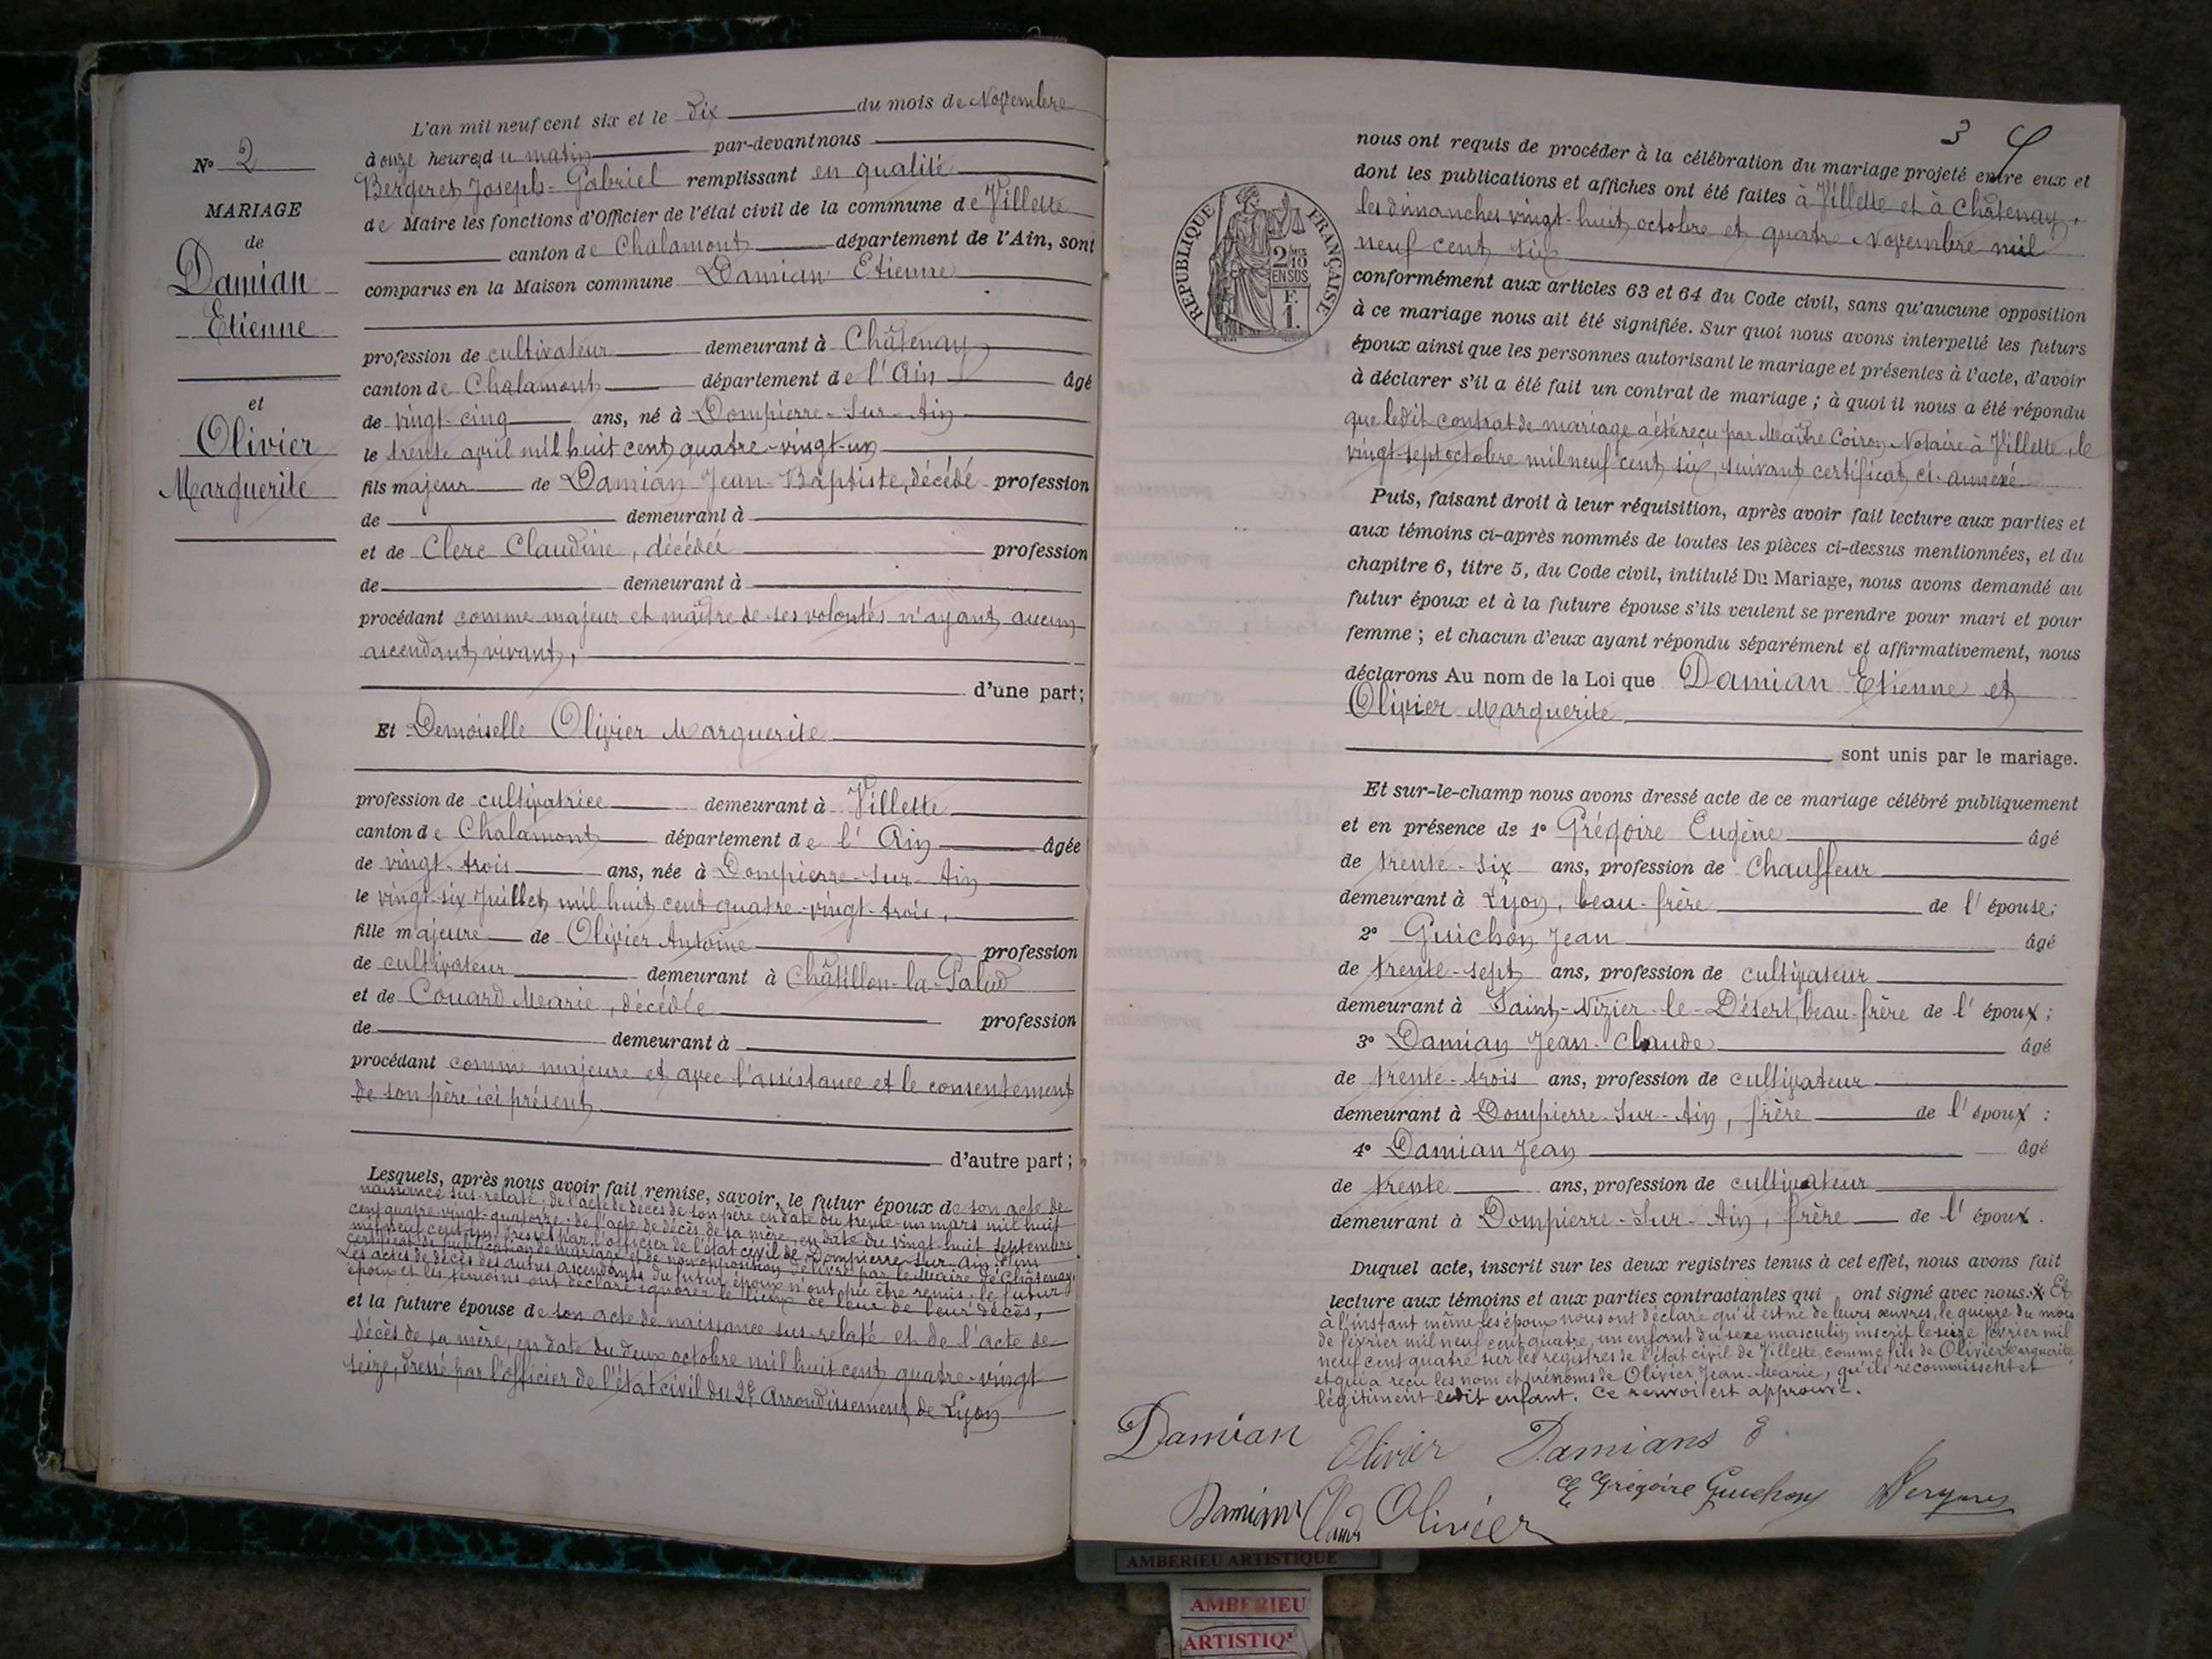 L'an mil neuf cent six et le dix du mois de Novembre
N° 2
à onze heures du matin par-devant nous
Bergeret Joseph-Gabriel remplissant en qualité
MARIAGE
de Maire les fonctions d'Officier de l'état civil de la commune de Villette
de
canton de Chalamont département de l'Ain, sont
Damian
comparus en la Maison commune Damian Etienne
Etienne
profession de cultivateur demeurant à Châtenay
canton de Chalamont département de l'Ain âgé
et
de vingt-cinq ans, né à Dompierre-sur-Ain
Olivier
le trente avril mil huit cent quatre-vingt-un
Marguerite
fils majeur de Damian Jean-Baptiste, décédé profession
de demeurant à
et de Clerc Claudine, décédée profession
de demeurant à
procédant comme majeur et maître de ses volontés n'ayant aucun
ascendant vivant,
d'une part;
Et Demoiselle Olivier Marguerite
profession de cultivatrice demeurant à Villette
canton de Chalamont département de l'Ain âgée
de vingt-trois ans, née à Dompierre-sur-Ain
le vingt-six Juillet mil huit cent quatre-vingt-trois,
fille majeure de Olivier Antoine profession
de cultivateur demeurant à Châtillon-la-Palud
et de Couard Marie, décédée profession
de demeurant à
procédant comme majeure et avec l'assistance et le consentement
de son père ici présent
d'autre part;
Lesquels, après nous avoir fait remise, savoir, le futur époux de son acte de
naissance sus-relaté, de l'acte de décès de son père en date du trente-un mars mil huit
cent quatre-vingt-quatorze; de l'acte de décès de sa mère, en date du vingt-huit septembre
mil neuf cent un, dressés par l'officier de l'état civil de Dompierre-sur-Ain; d'un
certificat de publication de mariage et de non opposition délivré par le Maire de Châtenay.
Les actes de décès des autres ascendants du futur époux n'ont pu être remis, le futur
époux et les témoins ont déclaré ignorer le lieu de leur décès,
et la future épouse de son acte de naissance sus-relaté et de l'acte de
décès de sa mère, en date du deux octobre mil huit cent quatre-vingt
seize, dressé par l'officier de l'état civil du 2e Arrondissement de Lyon
3
nous ont requis de procéder à la célébration du mariage projeté entre eux et
dont les publications et affiches ont été faites à Villette et à Châtenay,
les dimanches vingt-huit octobre et quatre Novembre mil
neuf cent six
REPUBLIQUE FRANÇAISE
2/10 EN SUS
F. 1.
conformément aux articles 63 et 64 du Code civil, sans qu'aucune opposition
à ce mariage nous ait été signifiée. Sur quoi nous avons interpellé les futurs
époux ainsi que les personnes autorisant le mariage et présentes à l'acte, d'avoir
à déclarer s'il a été fait un contrat de mariage; à quoi il nous a été répondu
que ledit contrat de mariage a été reçu par Maître Coiron Notaire à Villette, le
vingt-sept octobre mil neuf cent six, suivant certificat ci-annexé
Puis, faisant droit à leur réquisition, après avoir fait lecture aux parties et
aux témoins ci-après nommés de toutes les pièces ci-dessus mentionnées, et du
chapitre 6, titre 5, du Code civil, intitulé Du Mariage, nous avons demandé au
futur époux et à la future épouse s'ils veulent se prendre pour mari et pour
femme; et chacun d'eux ayant répondu séparément et affirmativement, nous
déclarons Au nom de la Loi que Damian Etienne et
Olivier Marguerite
sont unis par le mariage.
Et sur-le-champ nous avons dressé acte de ce mariage célébré publiquement
et en présence de 1° Grégoire Eugène âgé
de trente-six ans, profession de Chauffeur
demeurant à Lyon, beau-frère de l'épouse;
2° Guichon Jean âgé
de trente-sept ans, profession de cultivateur
demeurant à Saint-Nizier-le-Désert, beau-frère de l'époux;
3° Damian Jean-Claude âgé
de trente-trois ans, profession de cultivateur
demeurant à Dompierre-sur-Ain, frère de l'époux:
4° Damian Jean âgé
de trente ans, profession de cultivateur
demeurant à Dompierre-sur-Ain, frère de l'époux.
Duquel acte, inscrit sur les deux registres tenus à cet effet, nous avons fait
lecture aux témoins et aux parties contractantes qui ont signé avec nous. Et
à l'instant même les époux nous ont déclaré qu'il est né de leurs œuvres, le quinze du mois
de février mil neuf cent quatre, un enfant du sexe masculin inscrit le seize février mil
neuf cent quatre sur les registres de l'état civil de Villette, comme fils de Olivier Marguerite
et qui a reçu les nom et prénoms de Olivier Jean-Marie, qu'ils reconnaissent et
légitiment ledit enfant. Ce renvoi est approuvé.
Damian Olivier Damians E
Damian Claude Olivier E Grégoire Guichon
AMBERIEU ARTISTIQUE
AMBERIEU
ARTISTIQ